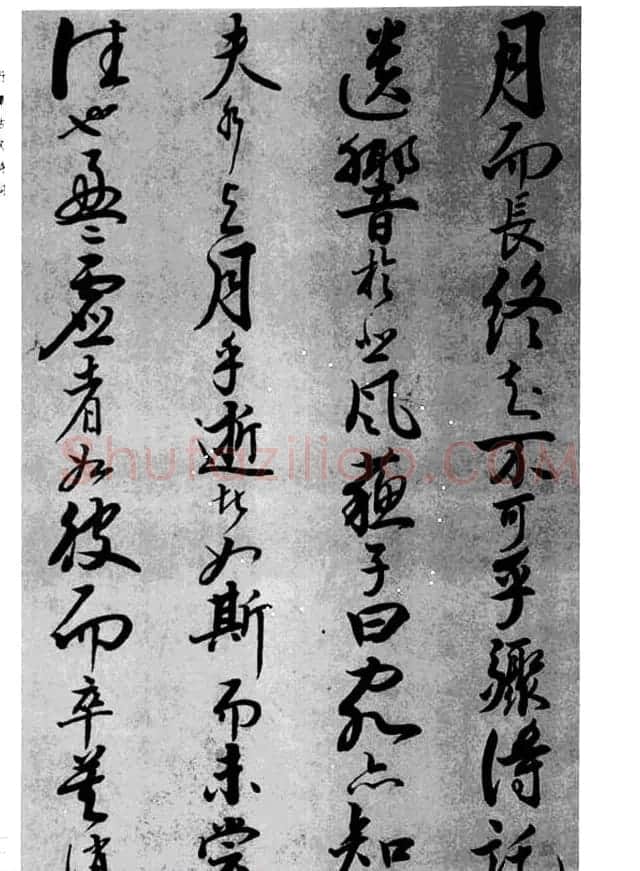 月而長終知不可乎驟得託
遺響於悲風蘇子曰客亦知
夫水與月乎逝者如斯而未嘗
往也盈〻虛者如彼而卒莫消
Shufaziliao.COM